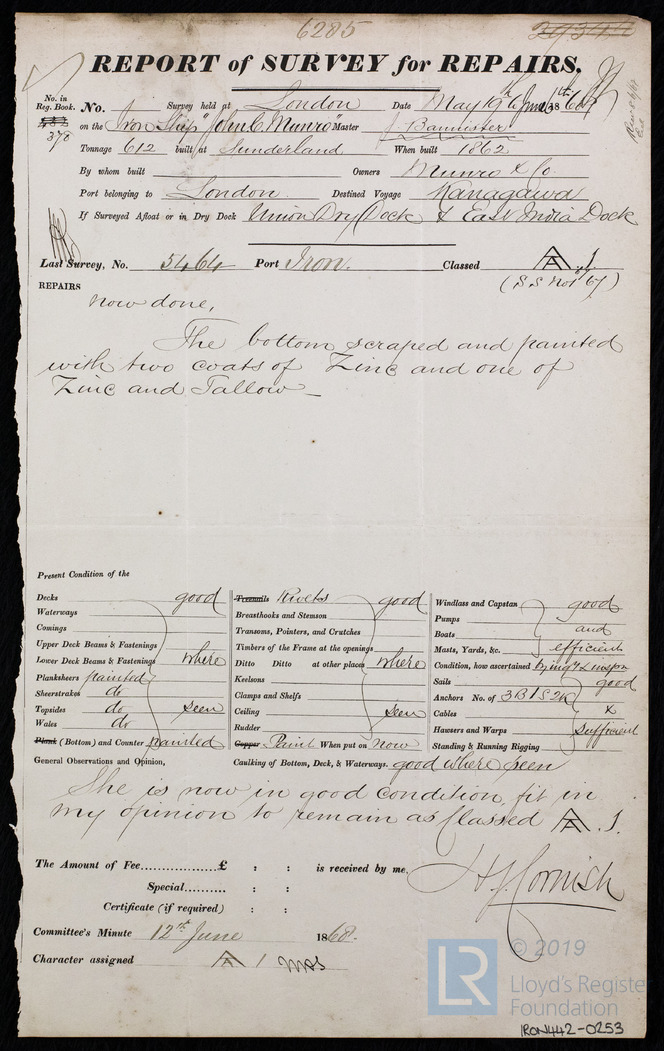 6285
29344
REPORT of SURVEY for REPAIRS.
No. in Reg. Book.
378
No. Survey held at London Date May 19th & June 6th 1868
on the Iron Ship "John C. Munro" Master J Bannister
Tonnage 612 built at Sunderland When built 1862
By whom built Owners Munro & Co.
Port belonging to London Destined Voyage Kanagawa
If Surveyed Afloat or in Dry Dock Union Dry Dock & East India Dock
Last Survey, No. 5464 Port Iron. Classed A 1
(S.S No1 67)
REPAIRS
Now done,
The bottom scraped and painted
with two coats of Zinc and one of
Zinc and Tallow
Present Condition of the
Decks good
Waterways
Comings
Upper Deck Beams & Fastenings
Lower Deck Beams & Fastenings where
Planksheers painted
Sheerstrakes do
Topsides do seen
Wales do
Plank (Bottom) and Counter painted
Treenails Rivets good
Breasthooks and Stemson
Transoms, Pointers, and Crutches
Timbers of the Frame at the openings
Ditto Ditto at other places where
Keelsons
Clamps and Shelfs
Ceiling seen
Rudder
Copper Paint When put on now
Windlass and Capstan good
Pumps
Boats and
Masts, Yards, &c. efficient
Condition, how ascertained
Sails good
Anchors No. of 3B 1S 2K
Cables &
Hawsers and Warps sufficient
Standing & Running Rigging
General Observations and Opinion, Caulking of Bottom, Deck, & Waterways. good where seen
She is now in good condition, fit in
my opinion to remain as Classed A .1.
The Amount of Fee..................£ : : is received by me,
Special.......... : :
Certificate (if required) : :
H J Cornish
Committee's Minute 12th June 1868.
Character assigned A 1
LR
© 2019
Lloyd's Register
Foundation
IRON442-0253